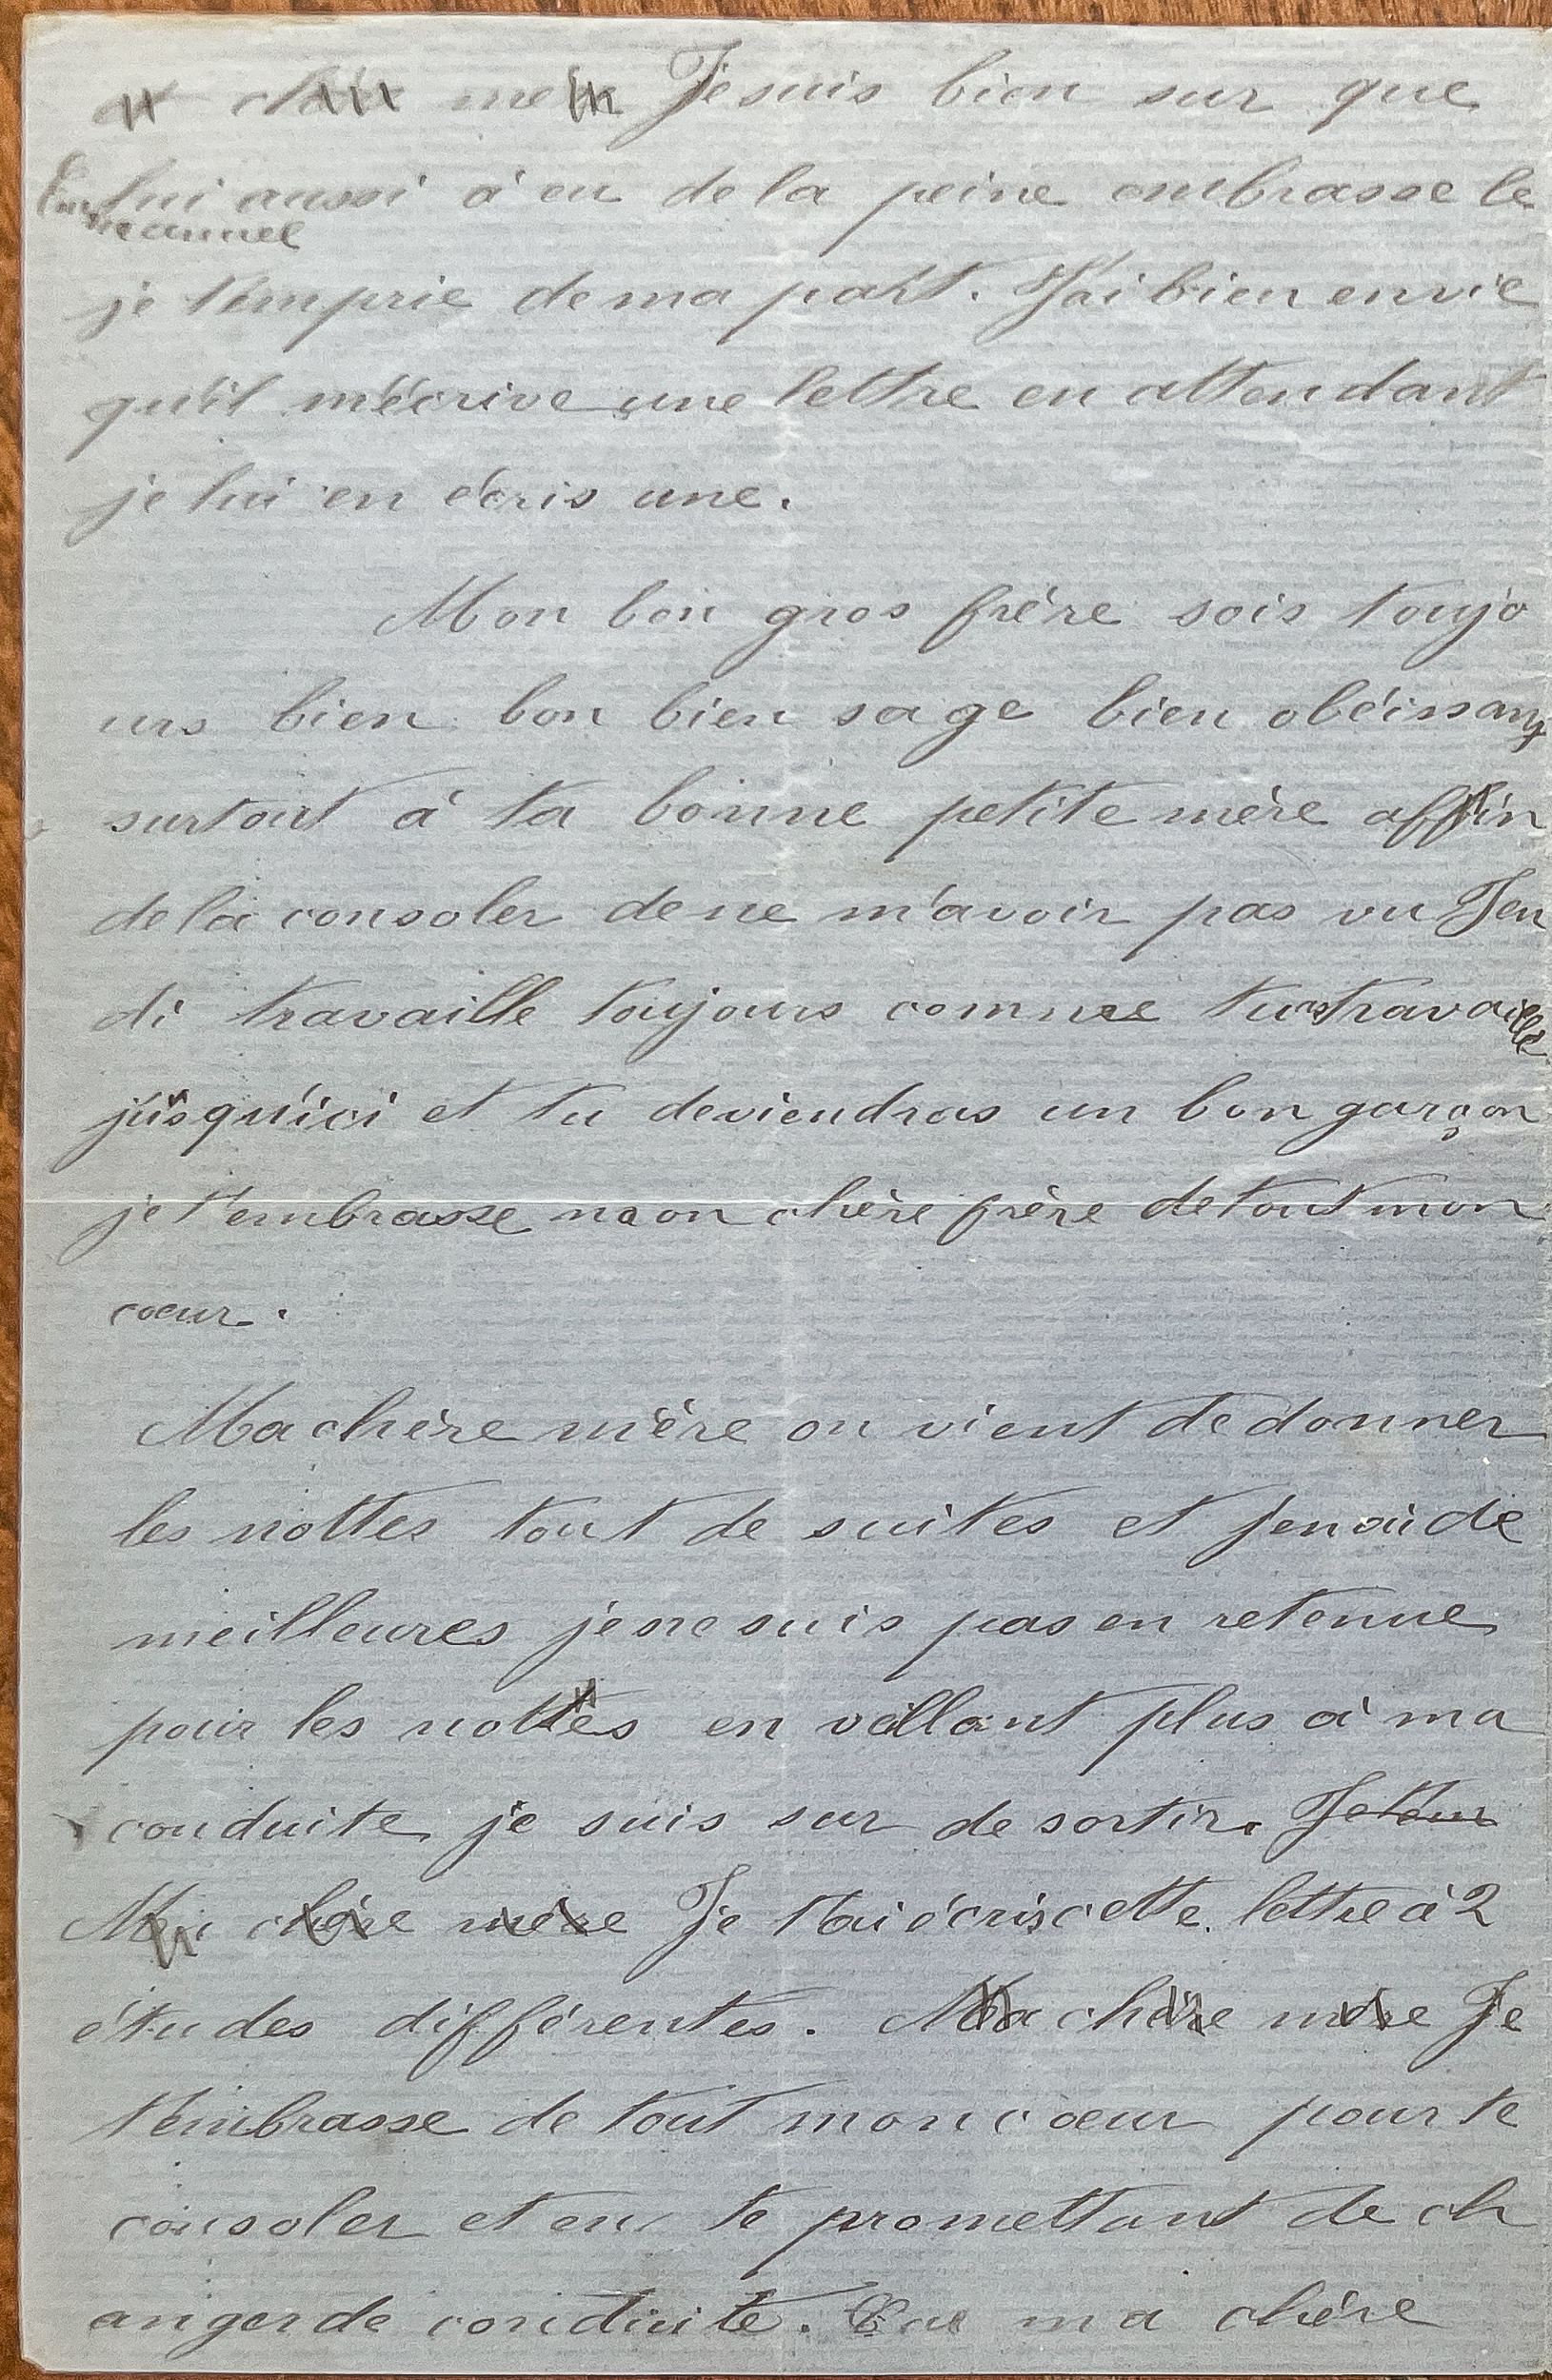 Je suis bien sur que
Emmanuel
lui aussi à eu de la peine embrasse le
je t'emprie de ma part. J'ai bien envie
qu'il m'écrive une lettre en attendant
je lui en écris une.
Mon bon gros frère sois toujo
urs bien bon bien sage bien obéissant
surtout à ta bonne petite mère affin
de la consoler de ne m'avoir pas vu Jeu
di travaille toujours comme tu as travaillé
jusqu'ici et tu deviendras un bon garçon
je t'embrasse mon chère frère de tout mon
coeur.
Ma chère mère on vient de donner
les nottes tout de suites et j'en ai de
meilleures je ne suis pas en retenue
pour les nottes en vellant plus à ma
conduite je suis sur de sortir. Je
Ma chère mère Je t'ai écris cette lettre à 2
études différentes. Ma chère mère Je
t'embrasse de tout mon coeur pour te
consoler et en te promettant de ch
anger de conduite. Car ma chère